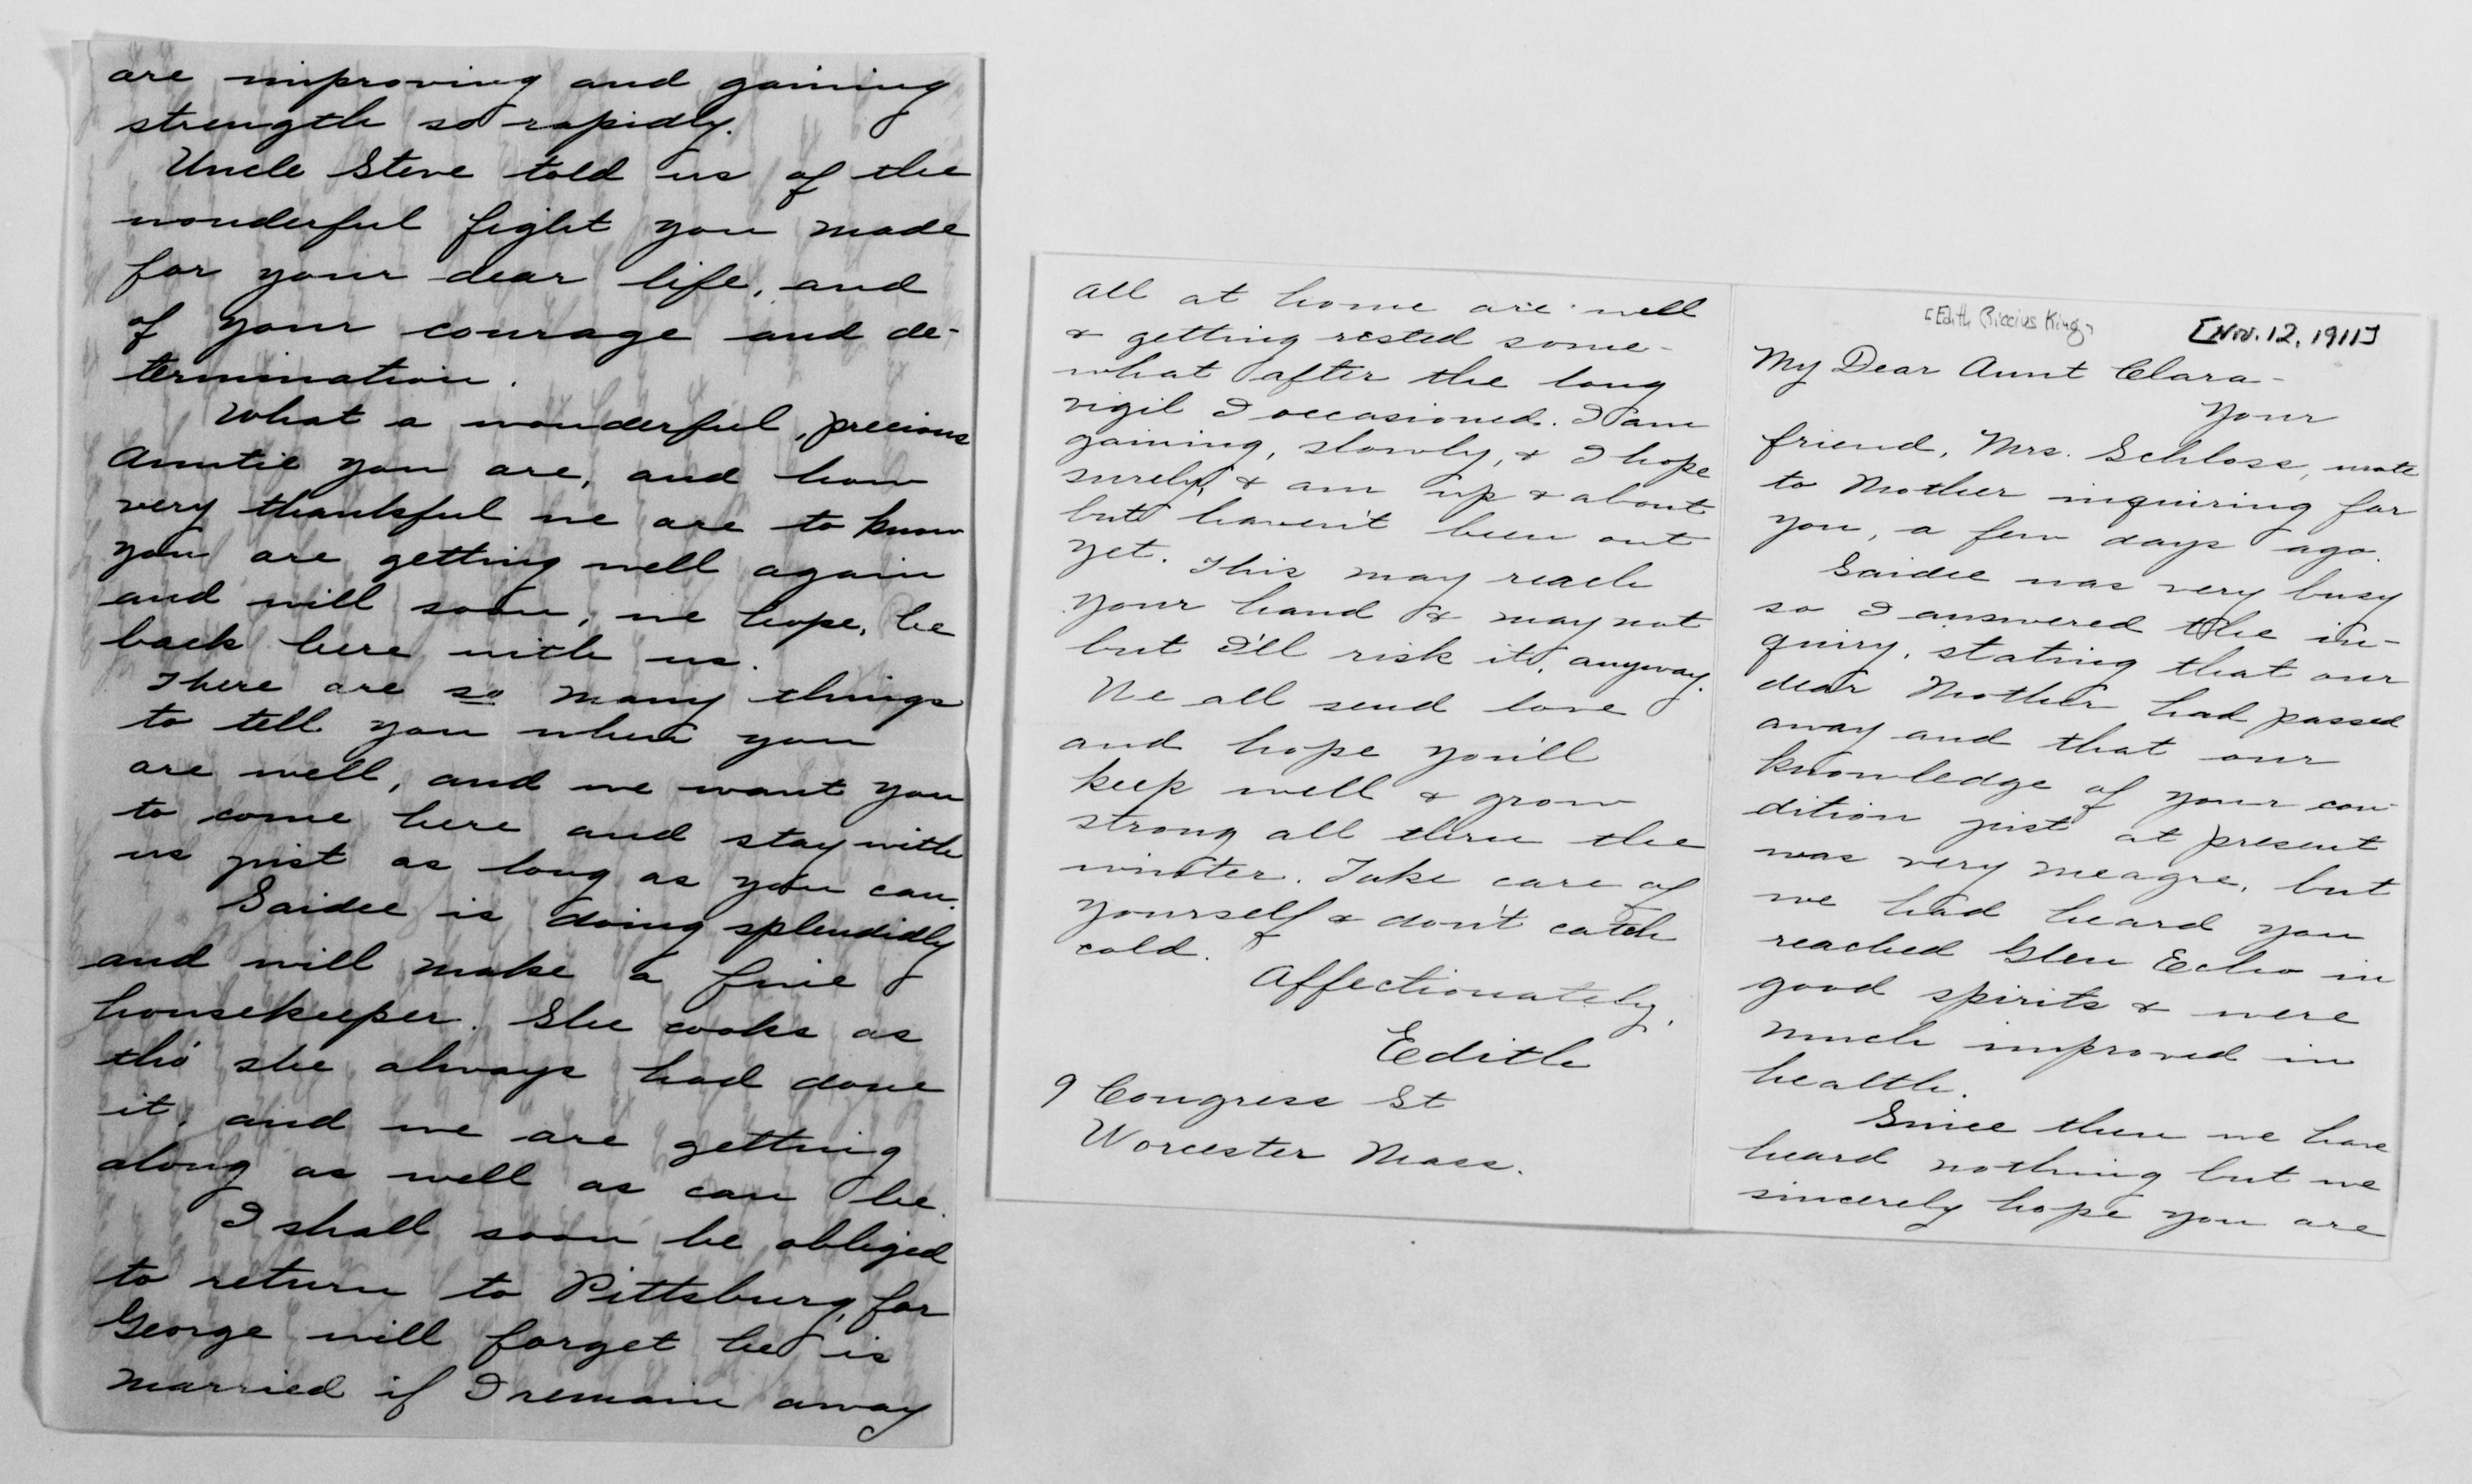 are improving and gaining
strength so rapidly.
Uncle Steve told us of the
wonderful fight you made
for your dear life, and
of your courage and de-
termination.
What a wonderful, precious
Auntie you are, and how
very thankful we are to know
you are getting well again
and will soon, we hope, be
back here with us.
There are so many things
to tell you when you
are well, and we want you
to come here and stay with
us just as long as you can.
Saidee is doing splendidly
and will make a fine
housekeeper. She cooks as
tho' she always had done
it, and we are getting
along as well as can be.
I shall soon be obliged
to return to Pittsburg, for
George will forget he is
married if I remain away
all at home are well
& getting rested some-
what after the long
vigil I occasioned. I am
gaining, slowly, & I hope
surely, & am up & about
but haven't been out
yet. This may reach
your hand & may not
but I'll risk it, anyway.
We all send love
and hope you'll
keep well & grow
strong all thru the
winter. Take care of
yourself & don't catch
cold.
Affectionately,
Edith
9 Congress St
Worcester Mass.
[Edith Riccius King]
[Nov. 12, 1911]
My Dear Aunt Clara-
Your
friend, Mrs. Schloss, wrote
to Mother inquiring for
you, a few days ago.
Saidee was very busy
so I answered the in-
quiry, stating that our
dear Mother had passed
away and that our
knowledge of your con-
dition just at present
was very meagre, but
we had heard you
reached Glen Echo in
good spirits & were
much improved in
health.
Since then we have
heard nothing but we
sincerely hope you are